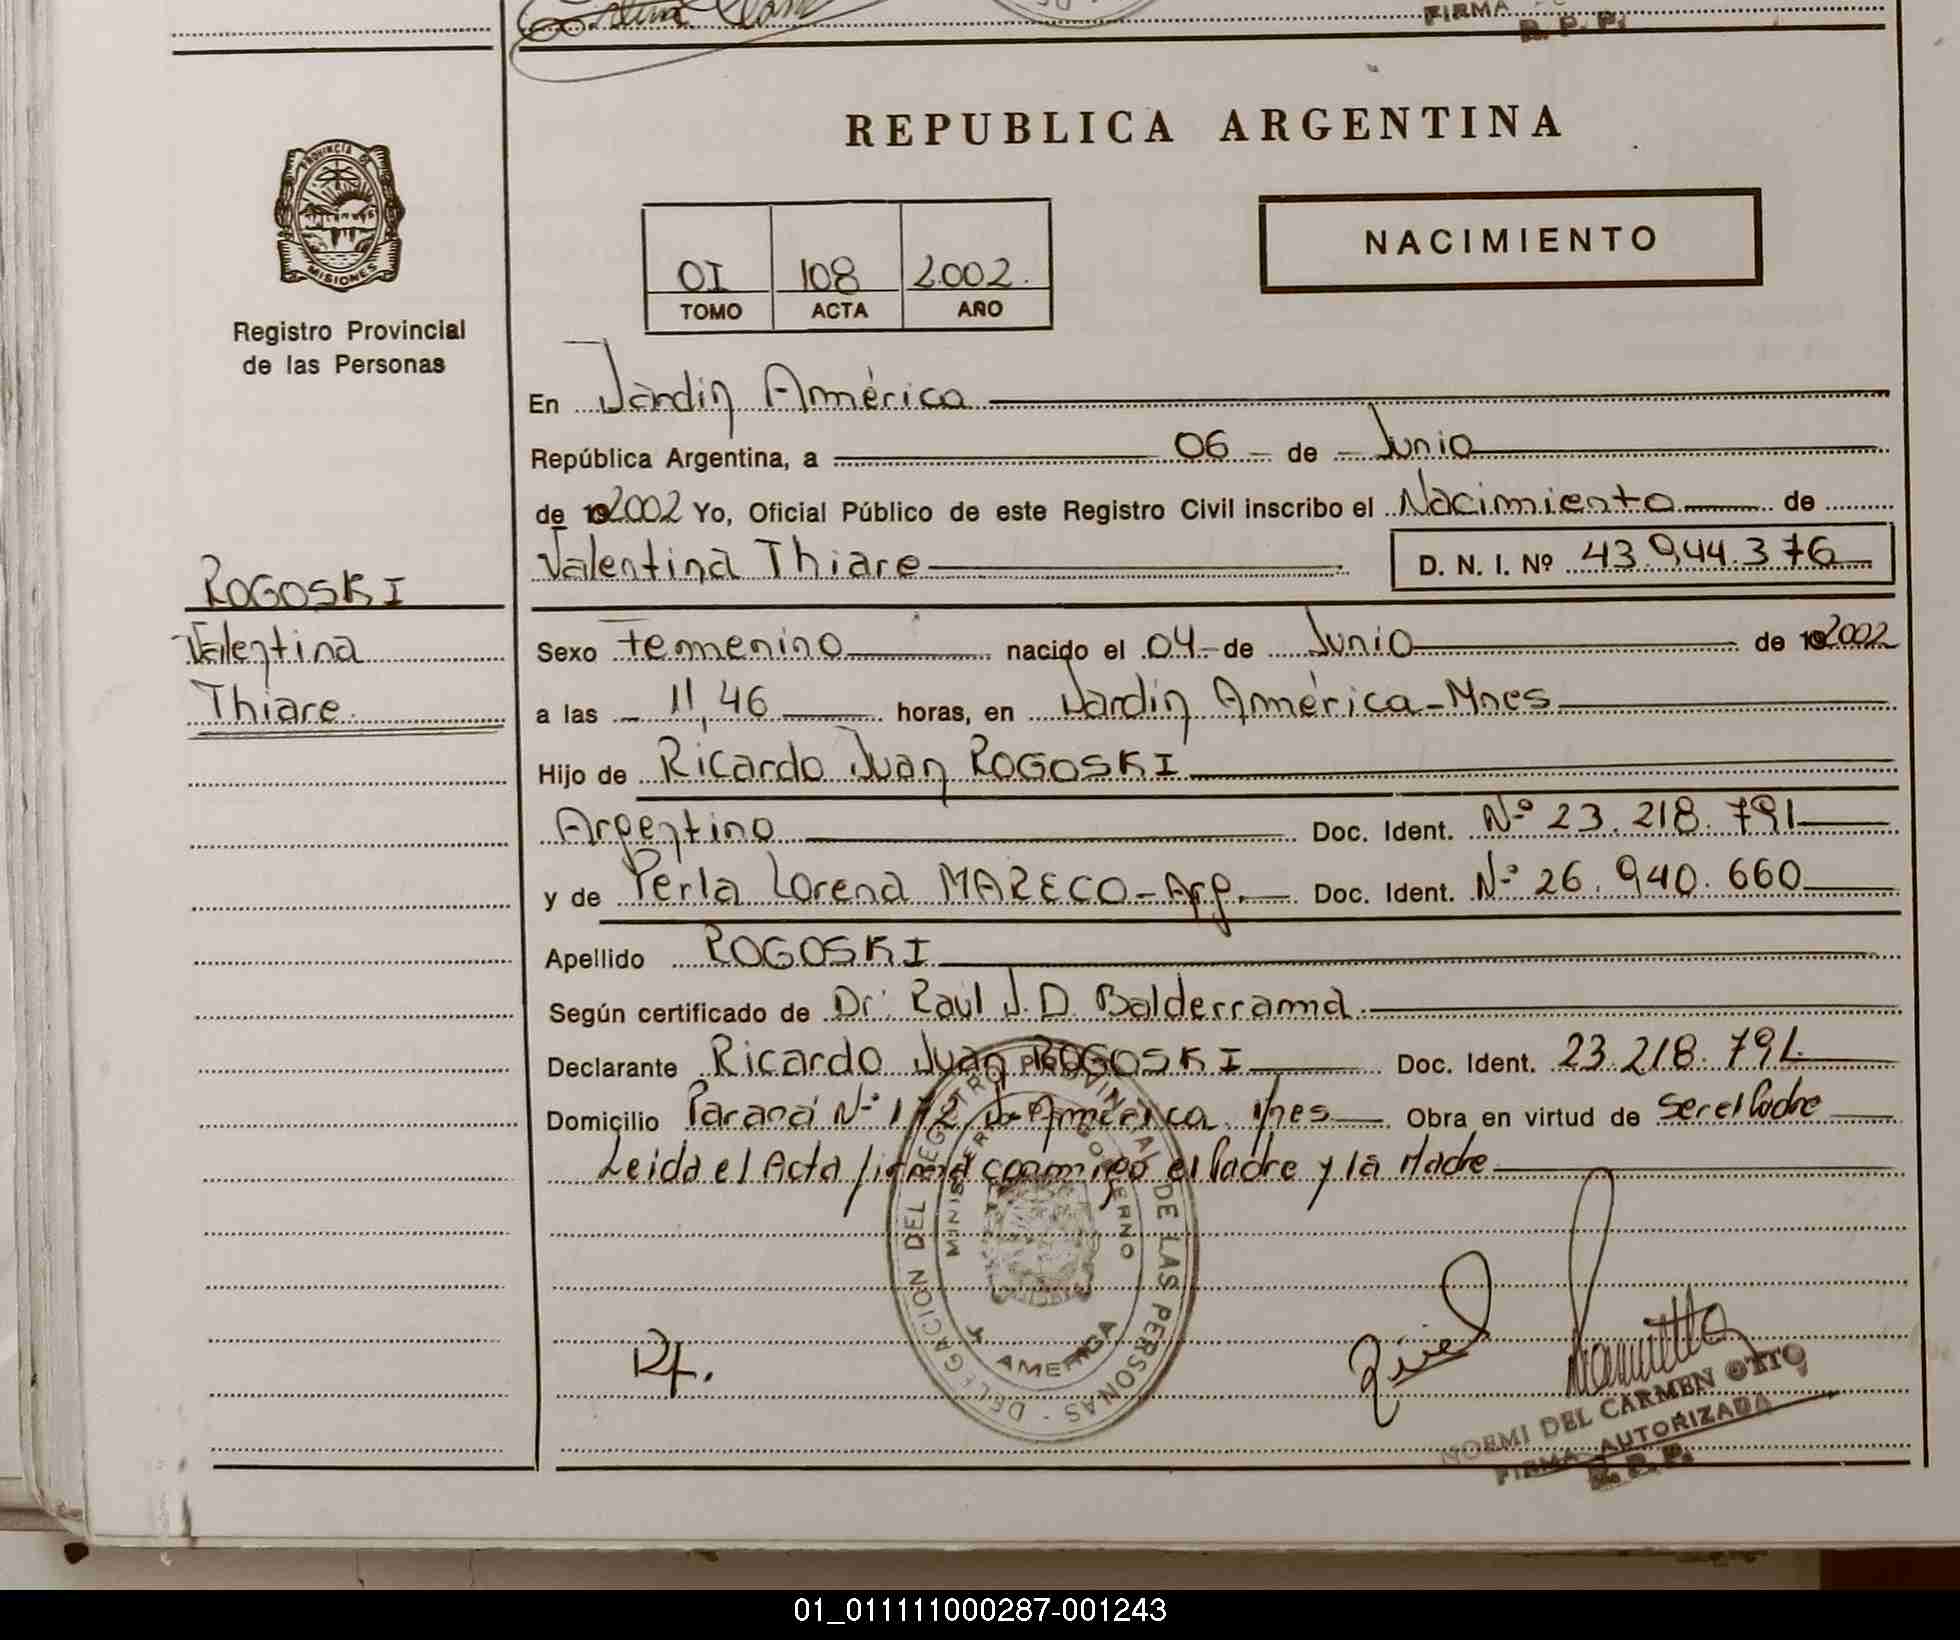 FIRMA
R. P. P.
PROVINCIA DE
MISIONES
Registro Provincial
de las Personas
ROGOSKI
Valentina
Thiare
REPUBLICA ARGENTINA
OI 108 2.002.
TOMO ACTA AÑO
NACIMIENTO
En Jardín América
República Argentina, a 06 de Junio
de 2002 Yo, Oficial Público de este Registro Civil inscribo el Nacimiento de
Valentina Thiare D. N. I. Nº 43.944.376
Sexo Femenino nacido el 04 de Junio de 2002
a las 11,46 horas, en Jardín América-Mnes
Hijo de Ricardo Juan ROGOSKI
Argentino Doc. Ident. Nº 23.218.791
y de Perla Lorena MARECO-Arg. Doc. Ident. Nº 26.940.660
Apellido ROGOSKI
Según certificado de Dr. Raúl J.D. Balderrama
Declarante Ricardo Juan ROGOSKI Doc. Ident. 23.218.791
Domicilio Paraná Nº 172 J. América Mnes Obra en virtud de ser el Padre
Leida el Acta firma conmigo el Padre y la Madre
DELEGACION DEL REGISTRO PROVINCIAL DE LAS PERSONAS
MINISTERIO GOBIERNO
AMERICA
NOEMI DEL CARMEN OTTO
FIRMA AUTORIZADA
R. P. P.
01_011111000287-001243